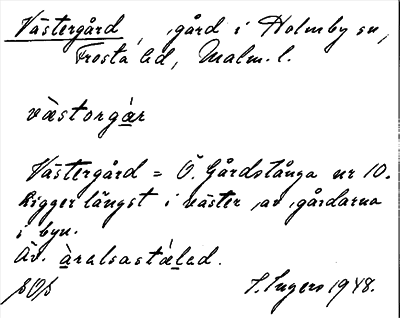 Västergård, gård i Holmby sn,
Frosta hd, Malm. l.
västorgár
Västergård = Ö. Gårdstånga nr 10.
Ligger längst i väster av gårdarna
i byn.
Äv.
I. Ingers 1948.